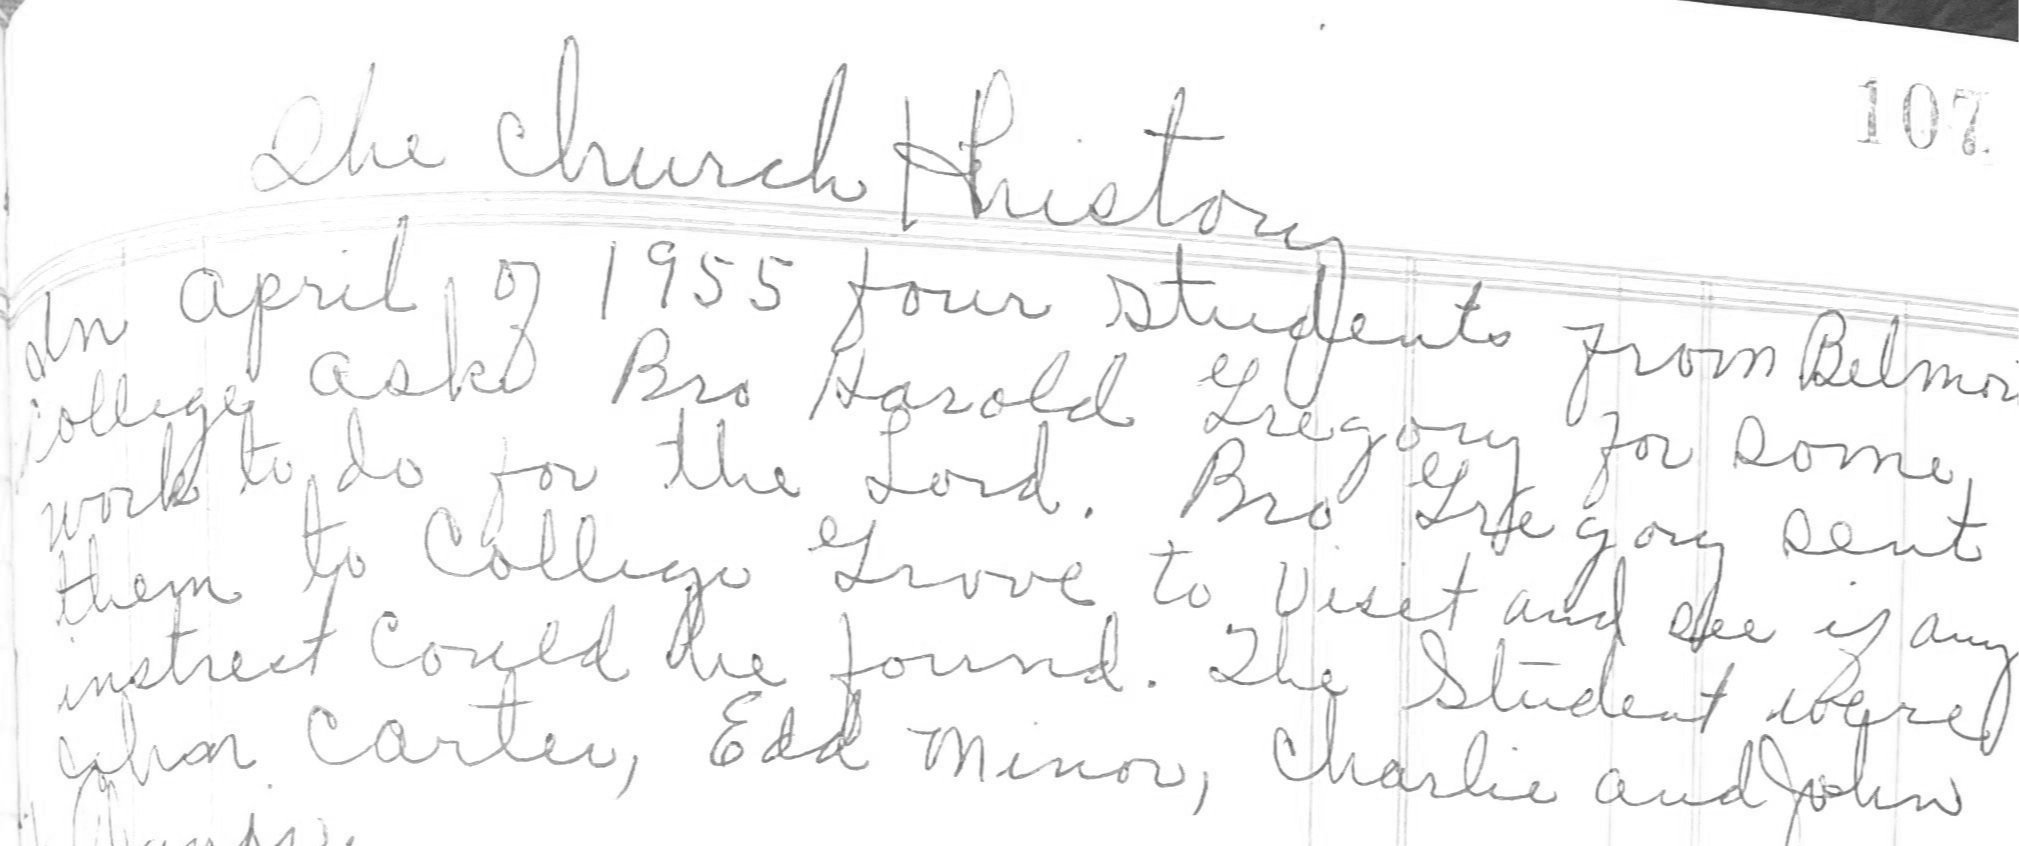 107
The Church History
In april of 1955 four students from Belmon
college asks Bro Harold Gregory for some
work to do for the Lord. Bro Gregory sent
them to College Grove to Viset and see if any
instrest Could be found. The Student were
John Carter, Edd Minor, Charlie and John